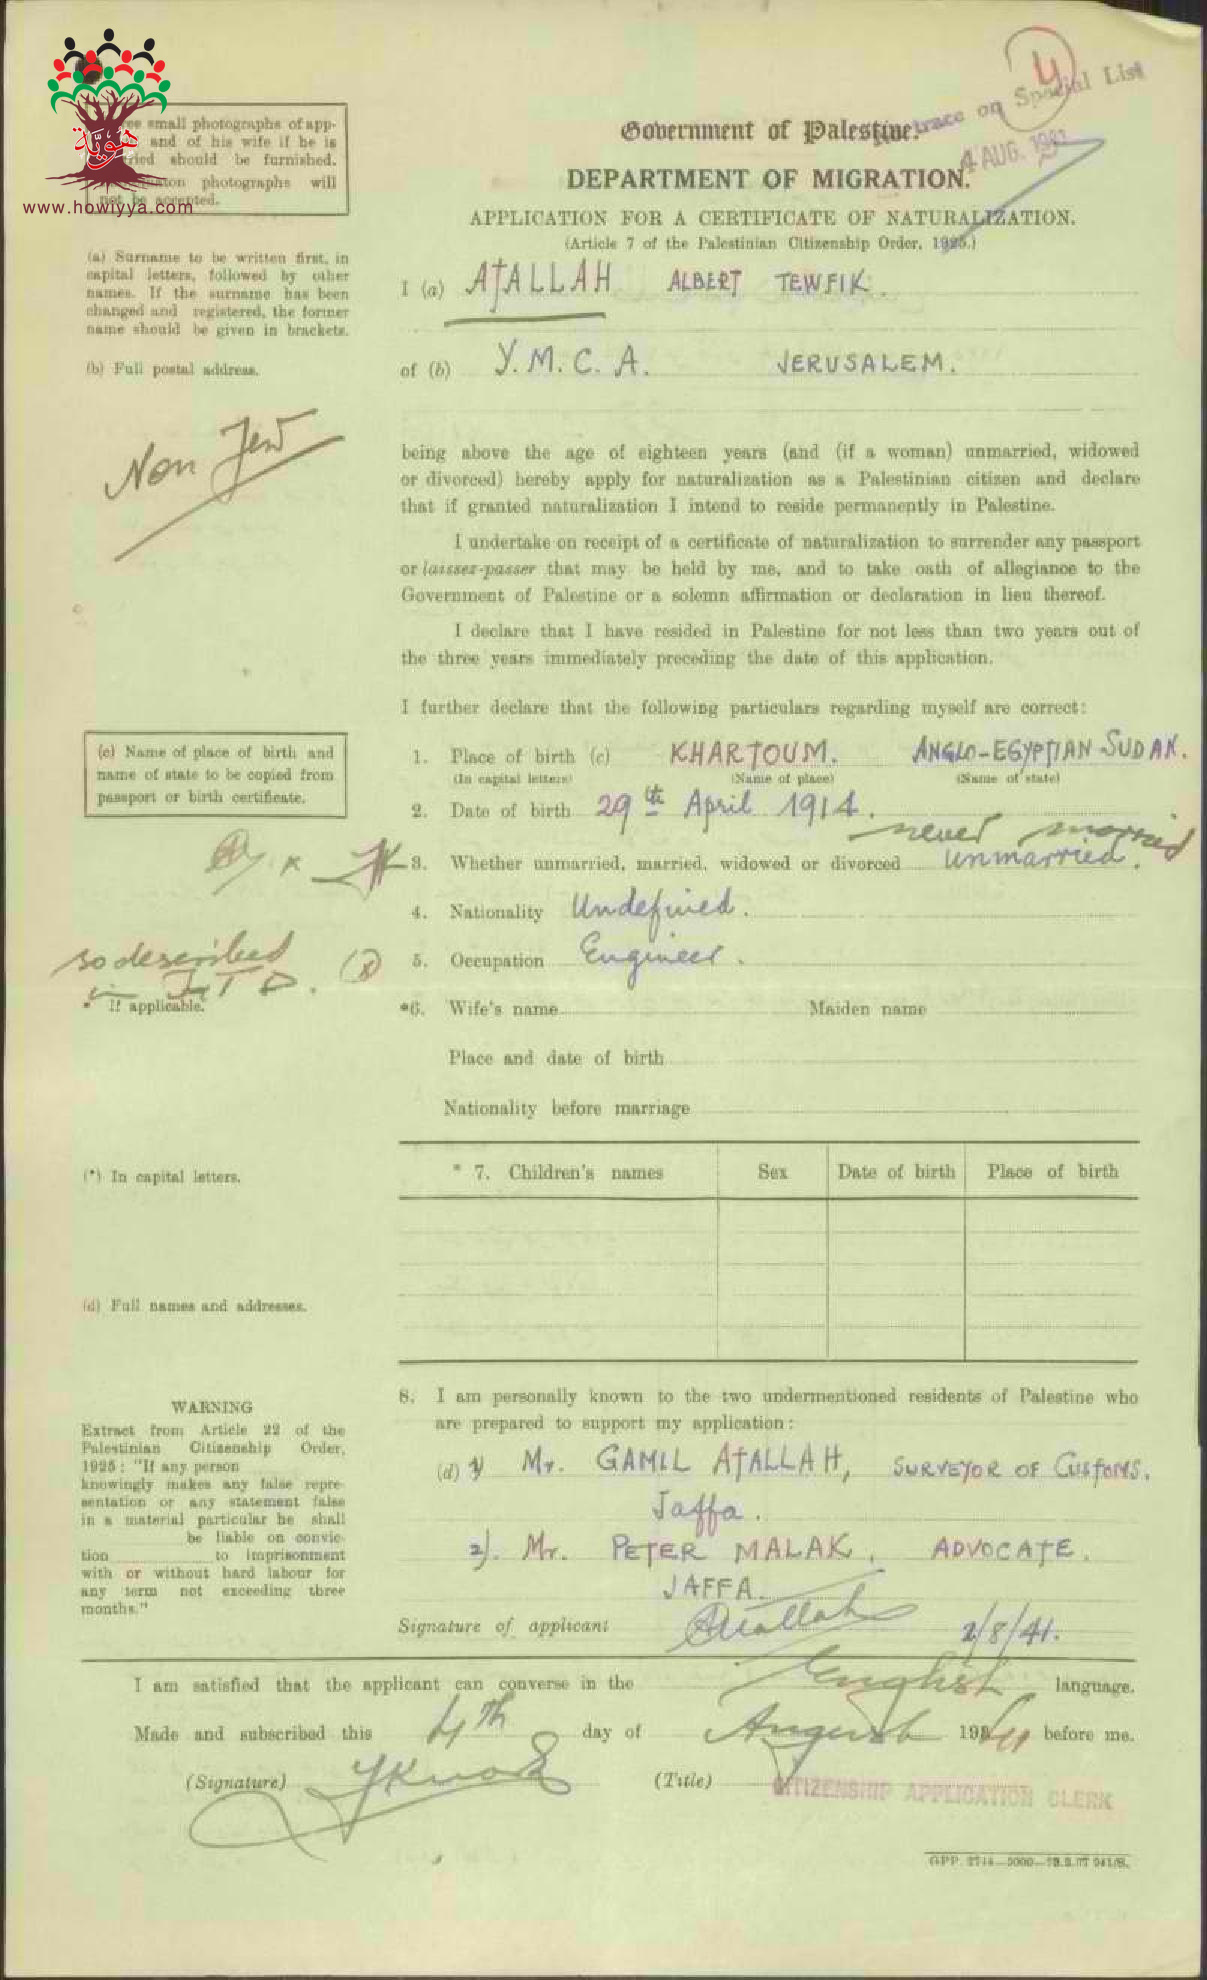 هوية
www.howiyya.com
small photographs of app-
and of his wife if he is
should be furnished.
photographs will
not be accepted.
4
trace on Special List
4 AUG.
Government of Palestine.
DEPARTMENT OF MIGRATION.
APPLICATION FOR A CERTIFICATE OF NATURALIZATION.
(Article 7 of the Palestinian Citizenship Order, 1925.)
(a) Surname to be written first, in
capital letters, followed by other
names. If the surname has been
changed and registered, the former
name should be given in brackets.
I (a) ATALLAH ALBERT TEWFIK.
(b) Full postal address.
of (b) Y.M.C.A. JERUSALEM.
Non Jew
being above the age of eighteen years (and (if a woman) unmarried, widowed
or divorced) hereby apply for naturalization as a Palestinian citizen and declare
that if granted naturalization I intend to reside permanently in Palestine.
I undertake on receipt of a certificate of naturalization to surrender any passport
or laissez-passer that may be held by me, and to take oath of allegiance to the
Government of Palestine or a solemn affirmation or declaration in lieu thereof.
I declare that I have resided in Palestine for not less than two years out of
the three years immediately preceding the date of this application.
I further declare that the following particulars regarding myself are correct:
(c) Name of place of birth and
name of state to be copied from
passport or birth certificate.
1. Place of birth (c) KHARTOUM. ANGLO-EGYPTIAN SUDAN.
(In capital letters) (Name of place) (Name of state)
2. Date of birth 29th April 1914.
never married
3. Whether unmarried, married, widowed or divorced unmarried.
4. Nationality Undefined.
so described
in
5. Occupation Engineer.
* If applicable.
*6. Wife's name Maiden name
Place and date of birth
Nationality before marriage
(*) In capital letters.
* 7. Children's names Sex Date of birth Place of birth
(d) Full names and addresses.
8. I am personally known to the two undermentioned residents of Palestine who
are prepared to support my application:
(d) 1) Mr. GAMIL ATALLAH, SURVEYOR OF CUSTOMS.
Jaffa.
2). Mr. PETER MALAK, ADVOCATE.
JAFFA.
WARNING
Extract from Article 22 of the
Palestinian Citizenship Order,
1925: "If any person
knowingly makes any false repre-
sentation or any statement false
in a material particular he shall
be liable on convic-
tion to imprisonment
with or without hard labour for
any term not exceeding three
months."
Signature of applicant Atallah 2/8/41.
I am satisfied that the applicant can converse in the English language.
Made and subscribed this 4th day of August 1941 before me.
(Signature) (Title) CITIZENSHIP APPLICATION CLERK